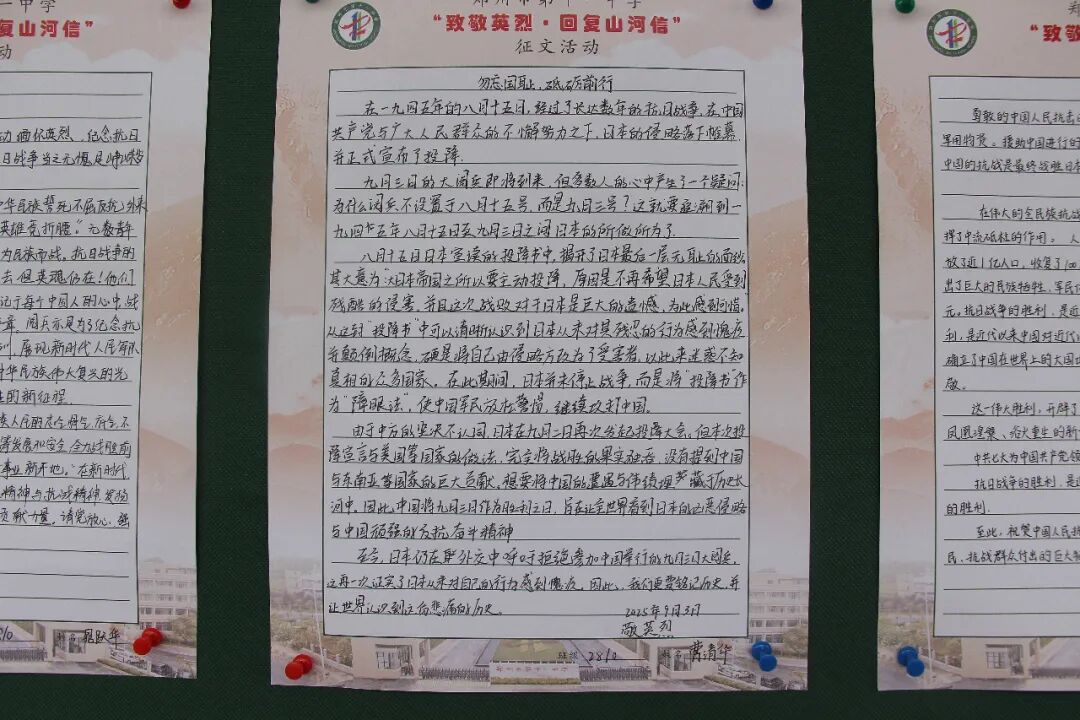 一中学
复山河信”
动
动 缅怀英烈、纪念抗日
日战争当之无愧
中华民族誓死不屈反抗外来
英雄竞折腰”。无数青年
为民族而战。抗日战争的
去 但英魂仍在！他们
记于每个中国人的心中 战
阅兵亦是为了纪念抗
展现新时代人民军队
中华民族伟大复兴的光
的新征程.
在新时代
精神与抗战精神 发扬
贡献力量，请党放心，强
郑州市第十一中学
“致敬英烈·回复山河信”
征文活动
勿忘国耻、砥砺前行
在一九四五年的八月十五日，经过了长达数年的抗日战争，在中国
共产党与广大人民群众的不懈努力之下，日本的侵略落下帷幕，
并正式宣布了投降.
九月三日的大阅兵即将到来，但多数人的心中产生了一个疑问：
为什么阅兵不设置于八月十五号，而是九月三号？这就要追溯到一
九四五年八月十五日至九月三日之间日本的所做所为了.
八月十五日日本宣读的投降书中，揭开了日本最后一层无耻的面纱.
其大意为“大日本帝国之所以要主动投降，原因是不再希望日本人民受到
残酷的侵害，并且这次战败对于日本是巨大的遗憾，为此感到可惜.”
从这封“投降书”中可以清晰认识到日本从未对其残忍的行为感到愧疚
并颠倒概念，硬是将自己由侵略方改为了受害者，以此来迷惑不知
真相的众多国家。在此期间，日本并未停止战争，而是将“投降书”作
为“障眼法”，使中国军民放松警惕，继续攻打中国。
由于中方的坚决不认同，日本在九月二日再次发起投降大会，但本次投
降宣言与美国等国家的做法，完全将战胜的果实独吞，没有提到中国
与东南亚等国家的巨大贡献，想要将中国的 与伟绩埋藏于历史长
河中。因此，中国将九月三日作为胜利之日，旨在让全世界看到日本的过恶侵略
与中国顽强的反抗奋斗精神
至今，日本仍在对外交中呼吁拒绝参加中国举行的九月三日大阅兵，
这再一次证实了日本从未对自己的行为感到愧疚。因此，我们更要铭记历史，并
让世界认识到这份悲痛的历史。
2025年9月3日
敬英烈
班级 2810
姓名
“致敬
勇敢的中国人民抗击
军用物资。援助中国进行的
中国的抗战是最终战胜日本
在伟大的全民族抗战
挥了中流砥柱的作用。人
放了近1亿人口，收复了100
出了巨大的民族牺牲，军民
元。抗日战争的胜利，是近
利，是近代以来中国对近代
确立了中国在世界上的大国
敬。
这一伟大胜利，开辟了
凤凰涅槃、浴火重生的新
中共七大为中国共产党领
抗日战争的胜利，是
的胜利.
至此，祝贺中国人民抗
民、抗战群众付出的巨大